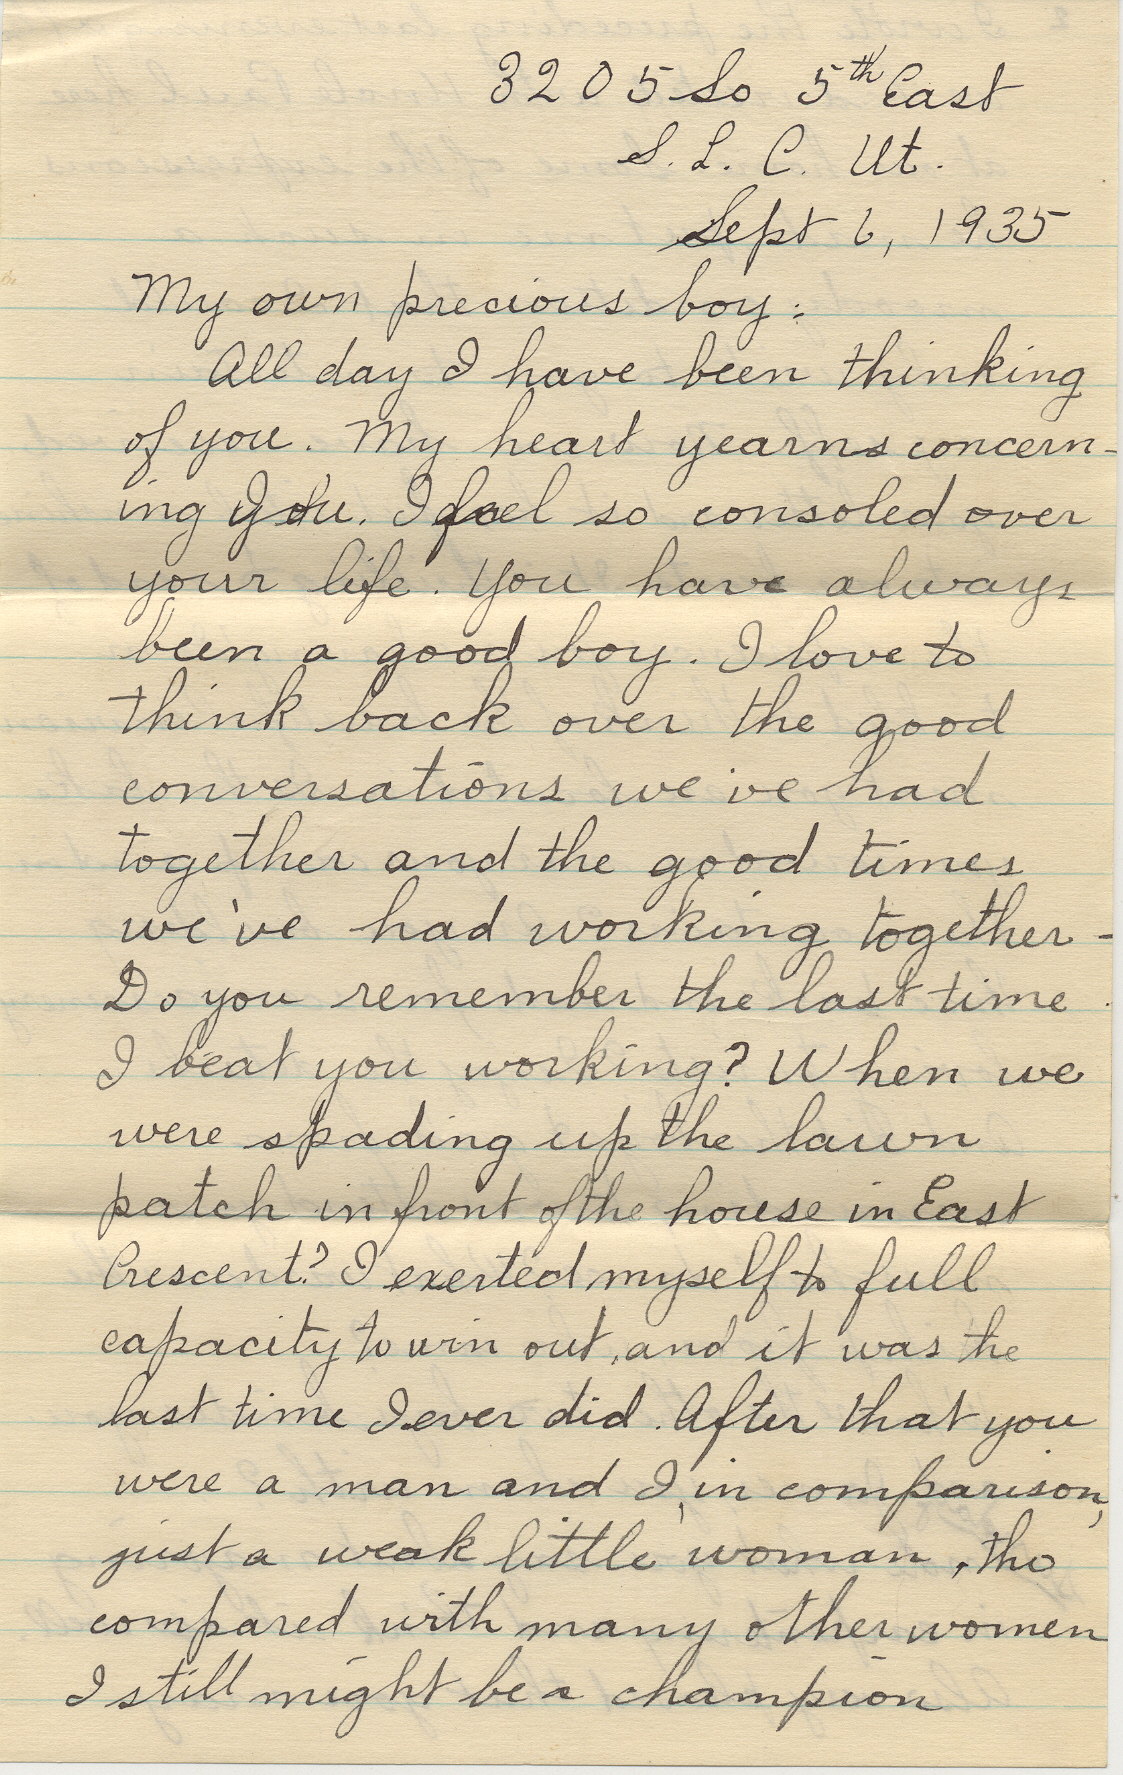 3205 So 5th East
S. L. C. Ut.
Sept 6, 1935
My own precious boy:
All day I have been thinking
of you. My heart yearns concern-
ing you. I feel so consoled over
your life. You have always
been a good boy. I love to
think back over the good
conversations we've had
together and the good times
we've had working together -
Do you remember the last time
I beat you working? When we
were spading up the lawn
patch in front of the house in East
Crescent? I exerted myself to full
capacity to win out, and it was the
last time I ever did. After that you
were a man and I, in comparison,
just a weak little woman, tho
compared with many other women
I still might be a champion